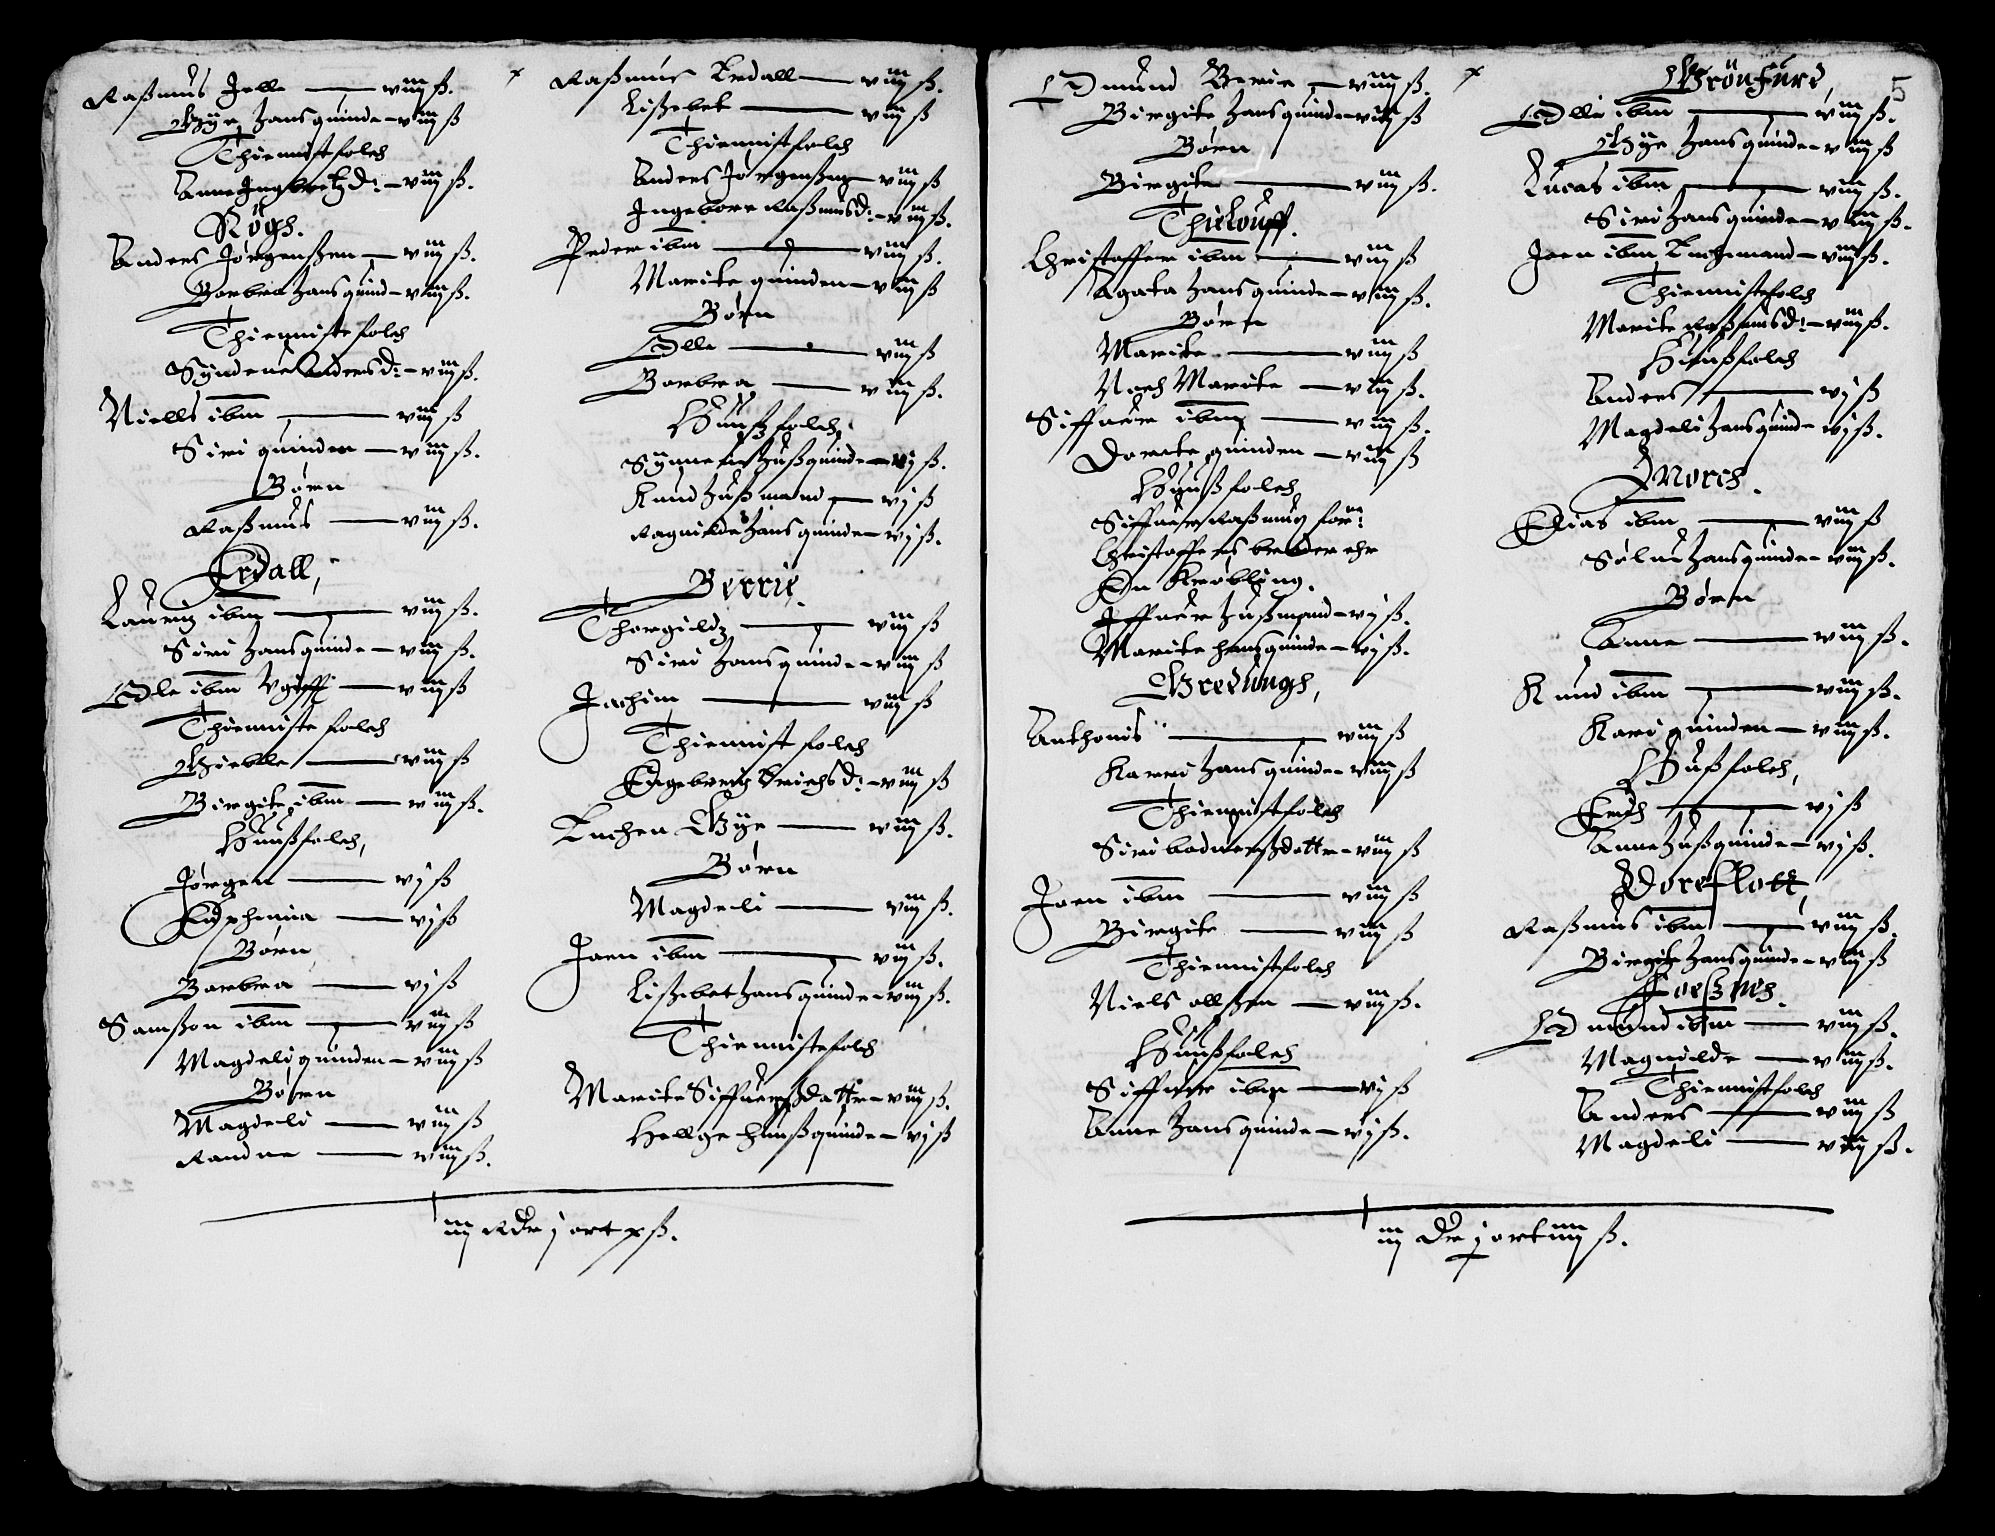 Raßmus Jelle — viiij ß.
Gye hansquinde — viiij ß
Thiennistfolch
Anne Ingbretzd: — viiij ß.
Rögh.
Anders Jørgenßen — viiij ß.
Barbra hansquind — viiij ß.
Thiennistefolch
Syndeue Andersd: — viiij ß.
Niells ibm — viiij ß
Siri quinden — viiij ß.
Børn
Raßmus — viiij ß.
Erdall,
Lauritz ibm — viiij ß.
Siri hansquinde — viiij ß.
Ole ibm Vgifft — viiij ß
Thienniste folch
Gielle — viiij ß
Birgite ibm — viiij ß.
Huußfolch,
Jørgen — vj ß
Euphemia — vj ß
Børn
Barbra — vj ß
Samßon ibm — viiij ß
Magdeli quinden — viiij ß
Børn
Magdeli — viiij ß
Randue — viiij ß.
Raßmus Erdall — viiij ß.
Lißebet — viiij ß
Thiennistfolch
Anders Jørgenßen — viiij ß
Ingeborre Raßmusd: — viiij ß.
Peder ibm — viiij ß.
Marite quinden — viiij ß
Børn
Olle — viiij ß
Barbra — viiij ß.
Hußfolch,
Synneue hußquinde — vj ß.
Knud hußmand — vj ß
Ragnilde hansquinde — vj ß.
Berrie.
Thorgildz — viiij ß
Siri hansquinde — viiij ß
Jachim — viiij ß
Thiennist folch
Engeborch Erichsd: — viiij ß
Enchen Gye — viiij ß.
Børn
Magdeli — viiij ß.
Joen ibm — viiij ß.
Lißebet hansquinde — viiij ß.
Thiennistefolch
Marite Siffuerßdatter — viiij ß.
Hellge hußquinde — vj ß
iiij Rdr j ort x ß.
Omund Berie — viiij ß.
Birgite hansquinde — viiij ß
Børn
Birgite — viiij ß.
Thielouff.
Christoffer ibm — viiij ß
Agata hansquinde — viiij ß.
Børn
Marite — viiij ß
Noch Marite — viiij ß.
Siffuer ibm — viiij ß.
Dorete quinden — viiij ß
Huußfolch
Siffuer Raßmus for:
Christoffers broder ehr
En Krøbling.
Iffuer hußmand — vj ß.
Marite hansquinde — vj ß.
Gredungh,
Anthonis — viiij ß
Karri hansquinde — viiij ß
Thiennistfolch
Siri Bodnerßdotter — viiij ß
Joen ibm — viiij ß
Birgite — viiij ß
Thiennistefolch
Niels ollßen — viiij ß.
Huußfolch
Siffuer ibm — vj ß
Anne hansquinde — vj ß.
5
Grönfurd,
Olle ibm — viiij ß.
Gye hansquinde — viiij ß
Lucas ibm — viiij ß.
Siri hansquinde — viiij ß.
Joen ibm Enchemand — viiij ß.
Thiennistefolch
Marite Raßmusd: — viiij ß.
Hußfolch
Anders — vj ß
Magdeli hansquinde — vj ß.
Morch.
Elias ibm — viiij ß
Sølue hansquinde — viiij ß.
Børn
Anne — viiij ß.
Knud ibm — viiij ß.
Kari quinden — viiij ß.
Hußfolch,
Erich — vj ß
Anne hußquinde — vj ß.
Voreflott,
Raßmus ibm — viiij ß.
Birgite hansquinde — viiij ß
Omund ibm — viiij ß.
Magnilde — viiij ß.
Thiennistfolch
Anders — viiij ß
Magdeli — viiij ß.
iiij Dr j ort iiij ß.